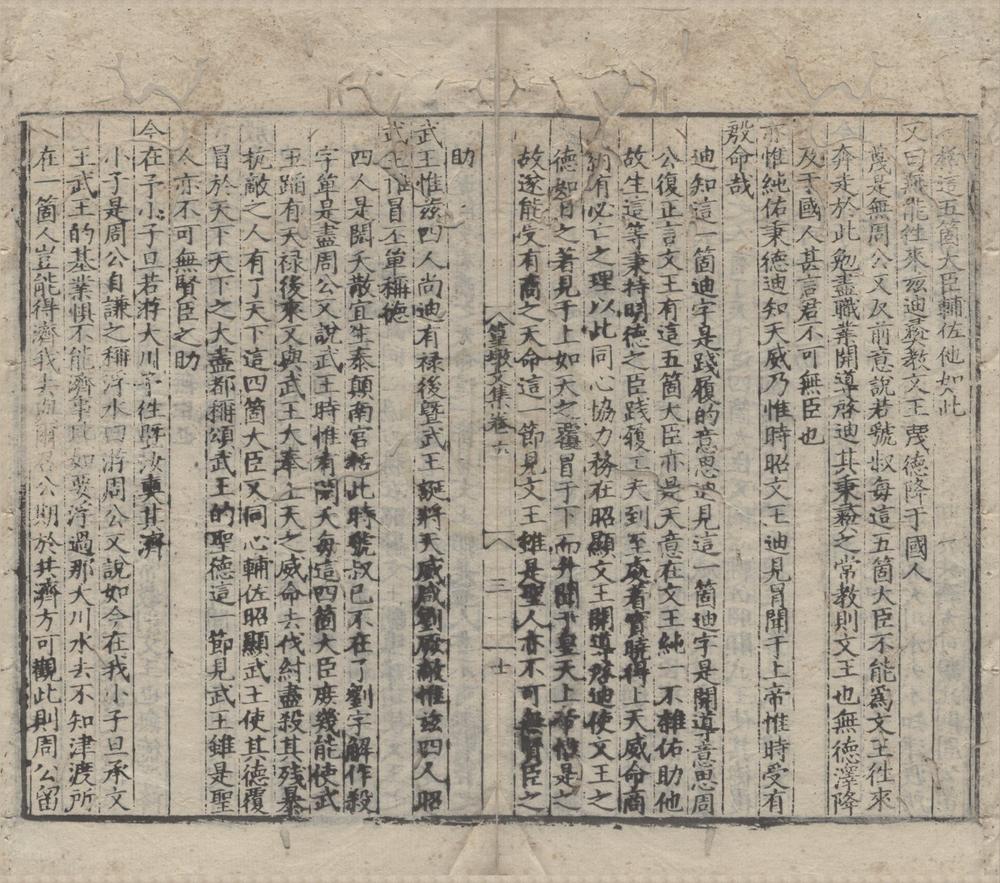 這五箇大臣輔佐他如此
又曰無能往來玆迪彛教文王蔑德降于國人
蔑是無周公又反前意說若虢叔每這五箇大臣不能爲文王往來
奔走於此勉盡職業開導啓迪其秉彛之常教則文王也無德澤降
及于國人甚言君不可無臣也
亦惟純佑秉德迪知天威乃惟時昭文王迪見冒聞于上帝惟時受有
殷命哉
迪知這一箇迪字是踐履的意思迪見這一箇迪字是開導意思周
公復正言文王有這五箇大臣亦是天意在文王純一不雜佑助他
故生這等秉持明德之臣踐履工夫到至處着實曉得上天威命商
紂有必亡之理以此同心協力務在昭顯文王開導啓迪使文王之
德如日之著見于上如天之覆冒于下而升聞于皇天上帝惟是之
故遂能受有商之天命這一節見文王雖是聖人亦不可無賢臣之
篁墩文集卷六
三
士
助
武王惟玆四人尚迪有禄後暨武王誕將天威咸劉厥敵惟玆四人昭
武王惟冒丕單稱德
四人是閎夭散宜生泰顛南宮括此時虢叔已不在了劉字解作殺
字單是盡周公又說武王時惟有閎夭每這四箇大臣庶幾能使武
王蹈有天禄後來又與武王大奉上天之威命去伐紂盡殺其残暴
抗敵之人有了天下這四箇大臣又同心輔佐昭顯武王使其德覆
冒於天下天下之大盡都稱頌武王的聖德這一節見武王雖是聖
人亦不可無賢臣之助
今在予小子旦若游大川予往曁汝奭其濟
小子是周公自謙之稱浮水曰游周公又說如今在我小子旦承文
王武王的基業惧不能濟事比如要浮過那大川水去不知津渡所
在一箇人豈能得濟我去與爾召公期於共濟方可觀此則周公留